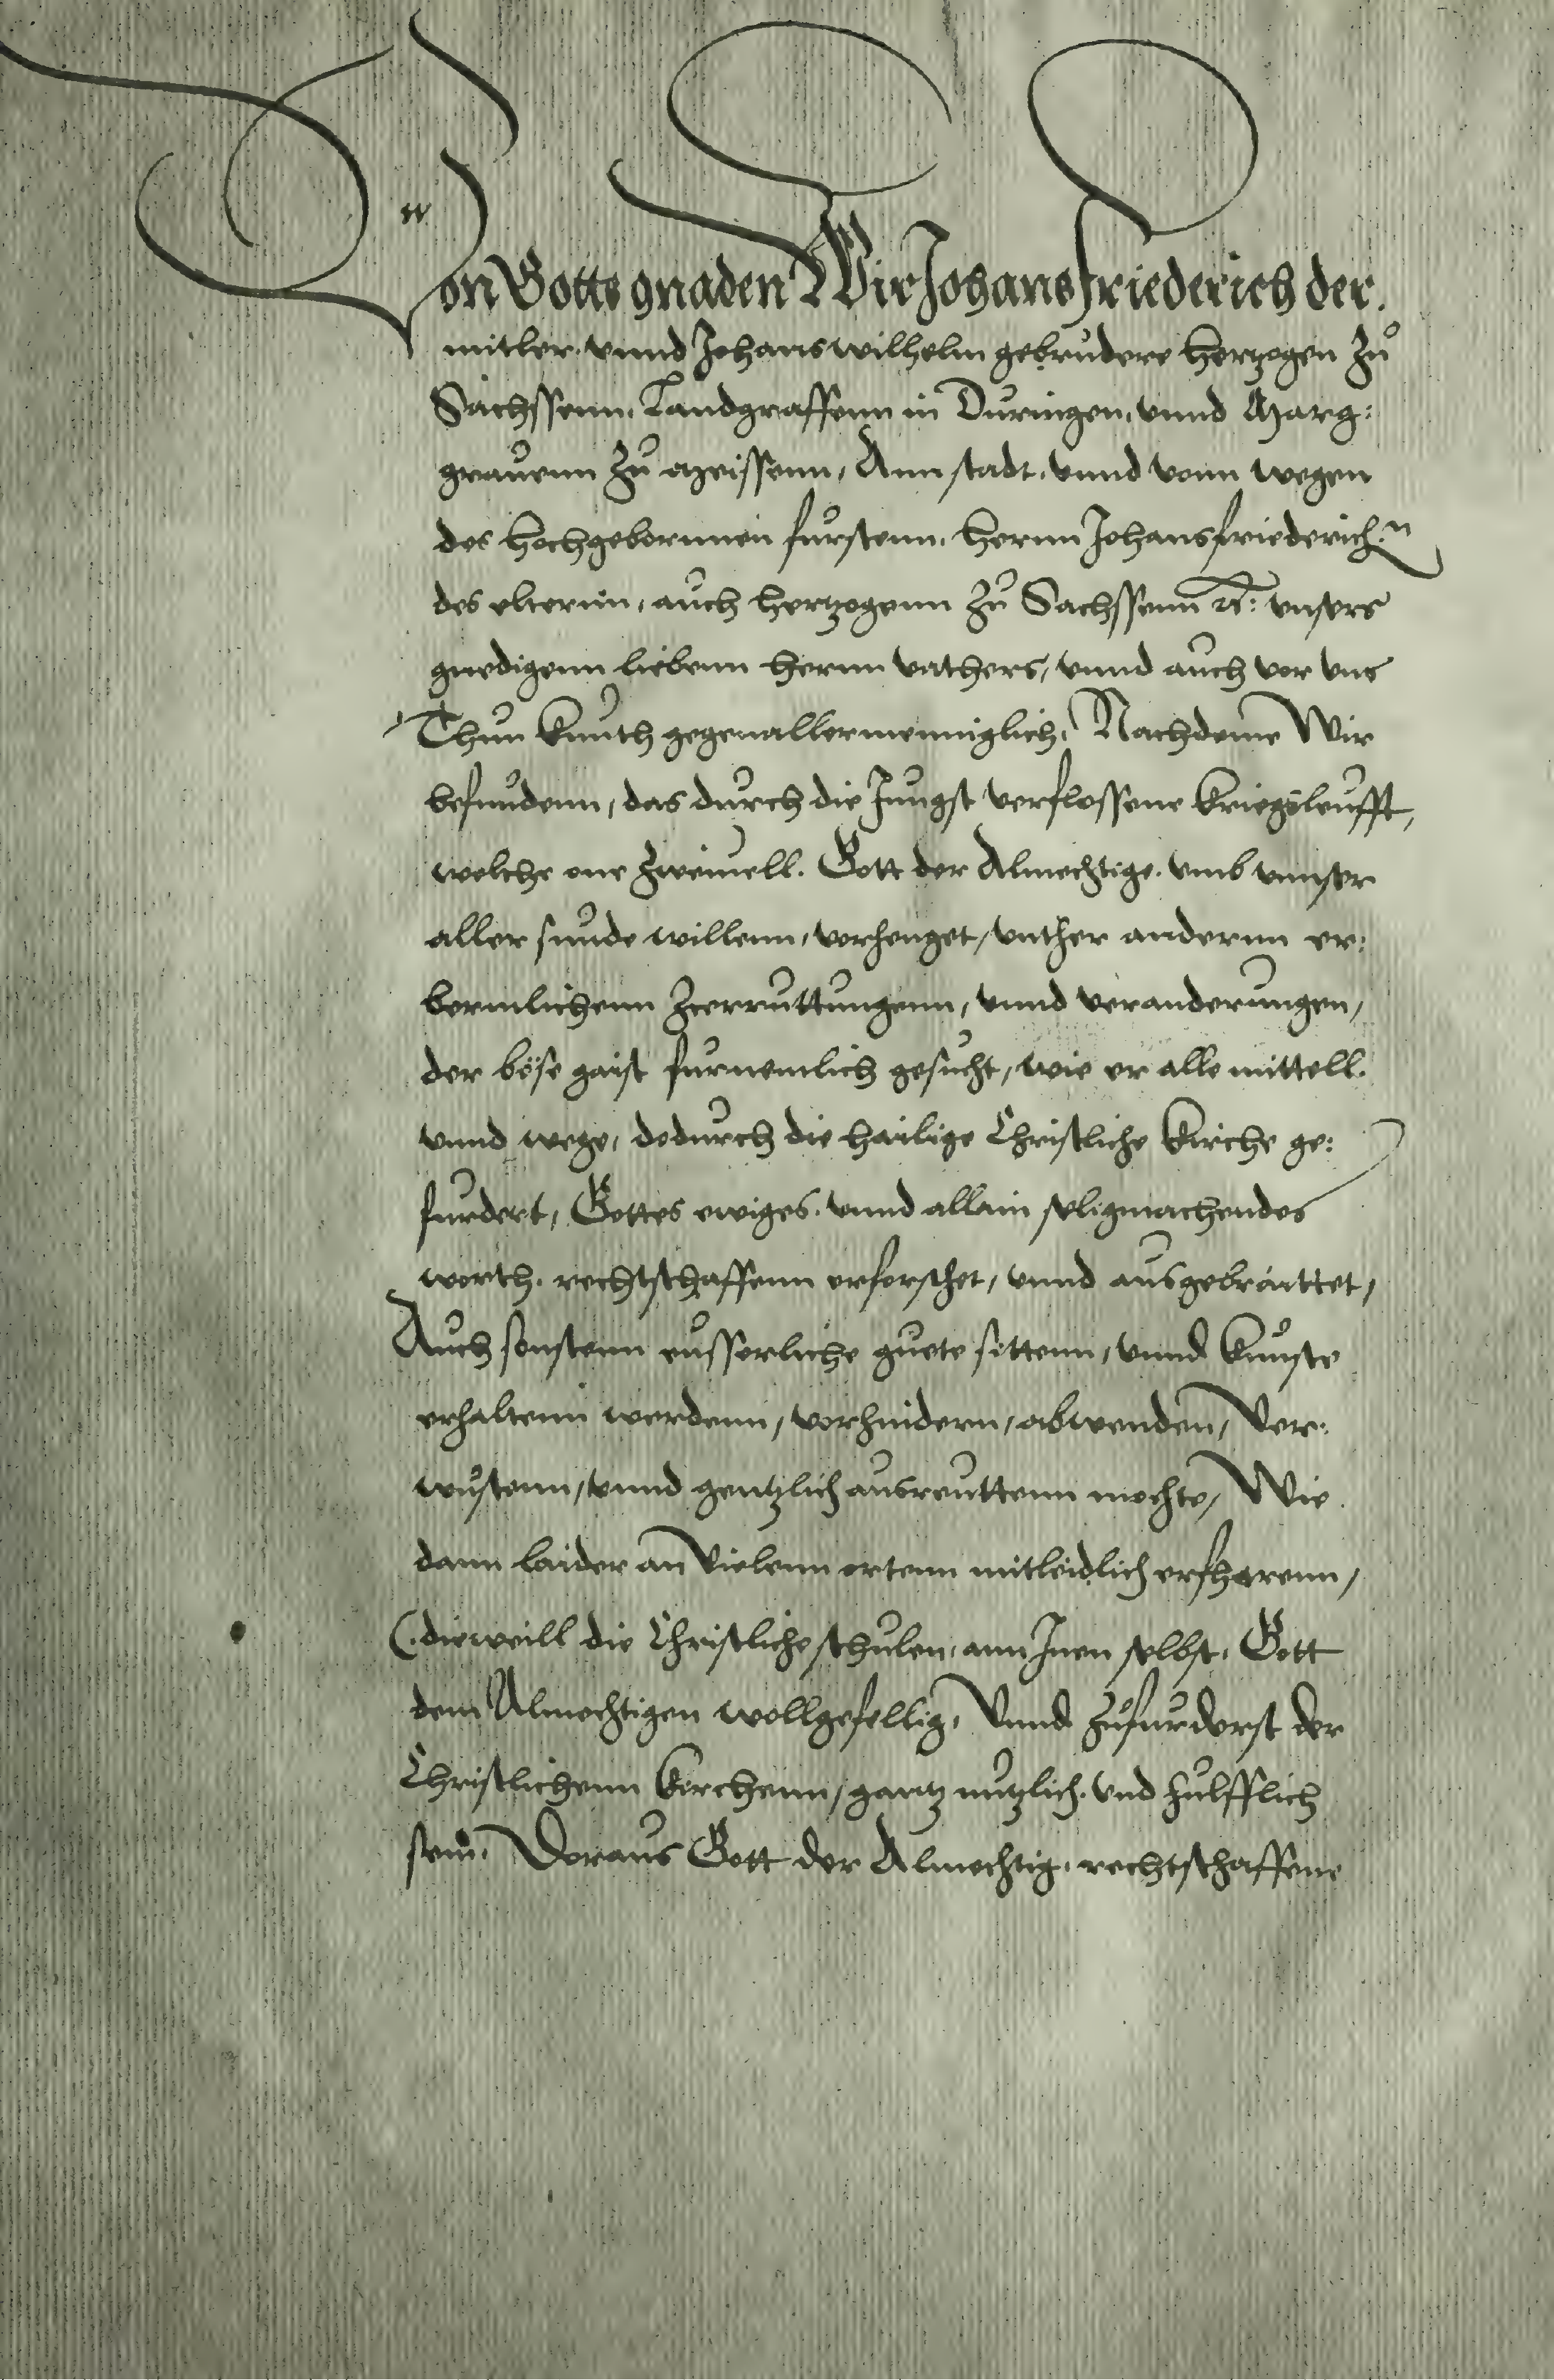 Von Gotts gnaden Wir Johans Friederich der.
mitler. vnnd Johans wilhelm gebrudere Hertzogen Zu
Sachssenn. Landgraffenn in Duringen, vnnd Marg:
grauenn Zu Meissenn, Ann stadt. vnnd vonn wegen
des Hochgebornnen furstenn. Hernn Johansfriederich:n
des elternn, auch Hertzogenn Zu Sachssenn rc: vnsers
gnedigenn liebenn Hernn vathers, vnnd auch vor vns
Thun kunth gegen allermenniglich. Nachdeme Wir
befundenn, das durch die Jungst verflossene kriegsleufft,
welche one Zweiuell. Gott der Almechtige. vmb vnnser
aller sunde willenn, vorhenget, vnther anderun er:
bermlichenn Zcerruttungenn, vnnd veranderungen,
der böse gaist furnemlich gesucht, wie er alle mittell.
vnnd wege, dodurch die hailige Christliche kirche ge:
furdert, Gottes ewiges. vnnd allain seligmachendes
worth. rechtschaffenn erforschet, vnnd ausgebraittet,
Auch sonstenn eusserliche guete sittenn, vnnd kunste
erhaltenn werdenn, vorhindern, abwenden, Ver:
wustenn, vnnd gentzlich ausreuttenn mochte, Wie
dann laider an Vielenn ortenn mitleidlich erfharenn,
(.dieweill die Christliche schulen, ann Jnen selbst. Gott
dem Almechtigen wollgefellig, Vnnd Zufurderst der
Christlichenn kirchenn, gantz nutzlich. vnd hulfflich
sein. Doraus Gott der Almechtig. rechtschaffene